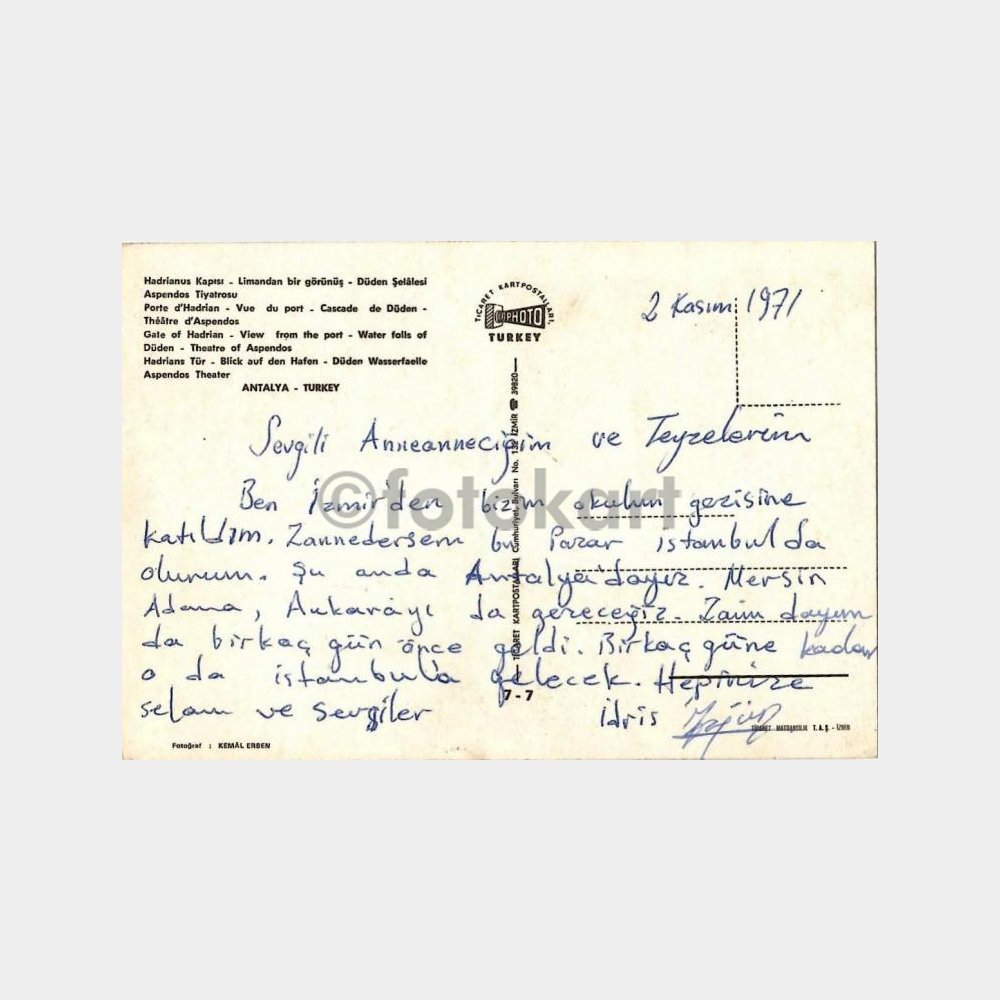 Hadrianus Kapısı - Limandan bir görünüş - Düden Şelâlesi
Aspendos Tiyatrosu
Porte d'Hadrian - Vue du port - Cascade de Düden -
Théâtre d'Aspendos
Gate of Hadrian - View from the port - Water folls of
Düden - Theatre of Aspendos
Hadrians Tür - Blick auf den Hafen - Düden Wasserfaelle
Aspendos Theater
ANTALYA - TURKEY
TİCARET KARTPOSTALLARI,
PHOTO
TURKEY
2 Kasım 1971
TİCARET KARTPOSTALLARI Cumhuriyet Bulvarı No. 132 İZMİR ☎ 39820
Sevgili Anneanneciğim ve Teyzelerim
Ben İzmir'den bizim okulun gezisine
katıldım. Zannedersem bu Pazar istanbulda
olurum. Şu anda Antalya'dayız. Mersin
Adana, Ankara'yı da gezeceğiz. Zaim dayım
da birkaç gün önce geldi. Birkaç güne kadar
o da istanbul'a gelecek. Hepinize
selam ve sevgiler
idris
©fotokart
7-7
Fotoğraf : KEMÂL ERBEN
TİCARET MATBAACILIK T. A. Ş. - İZMİR